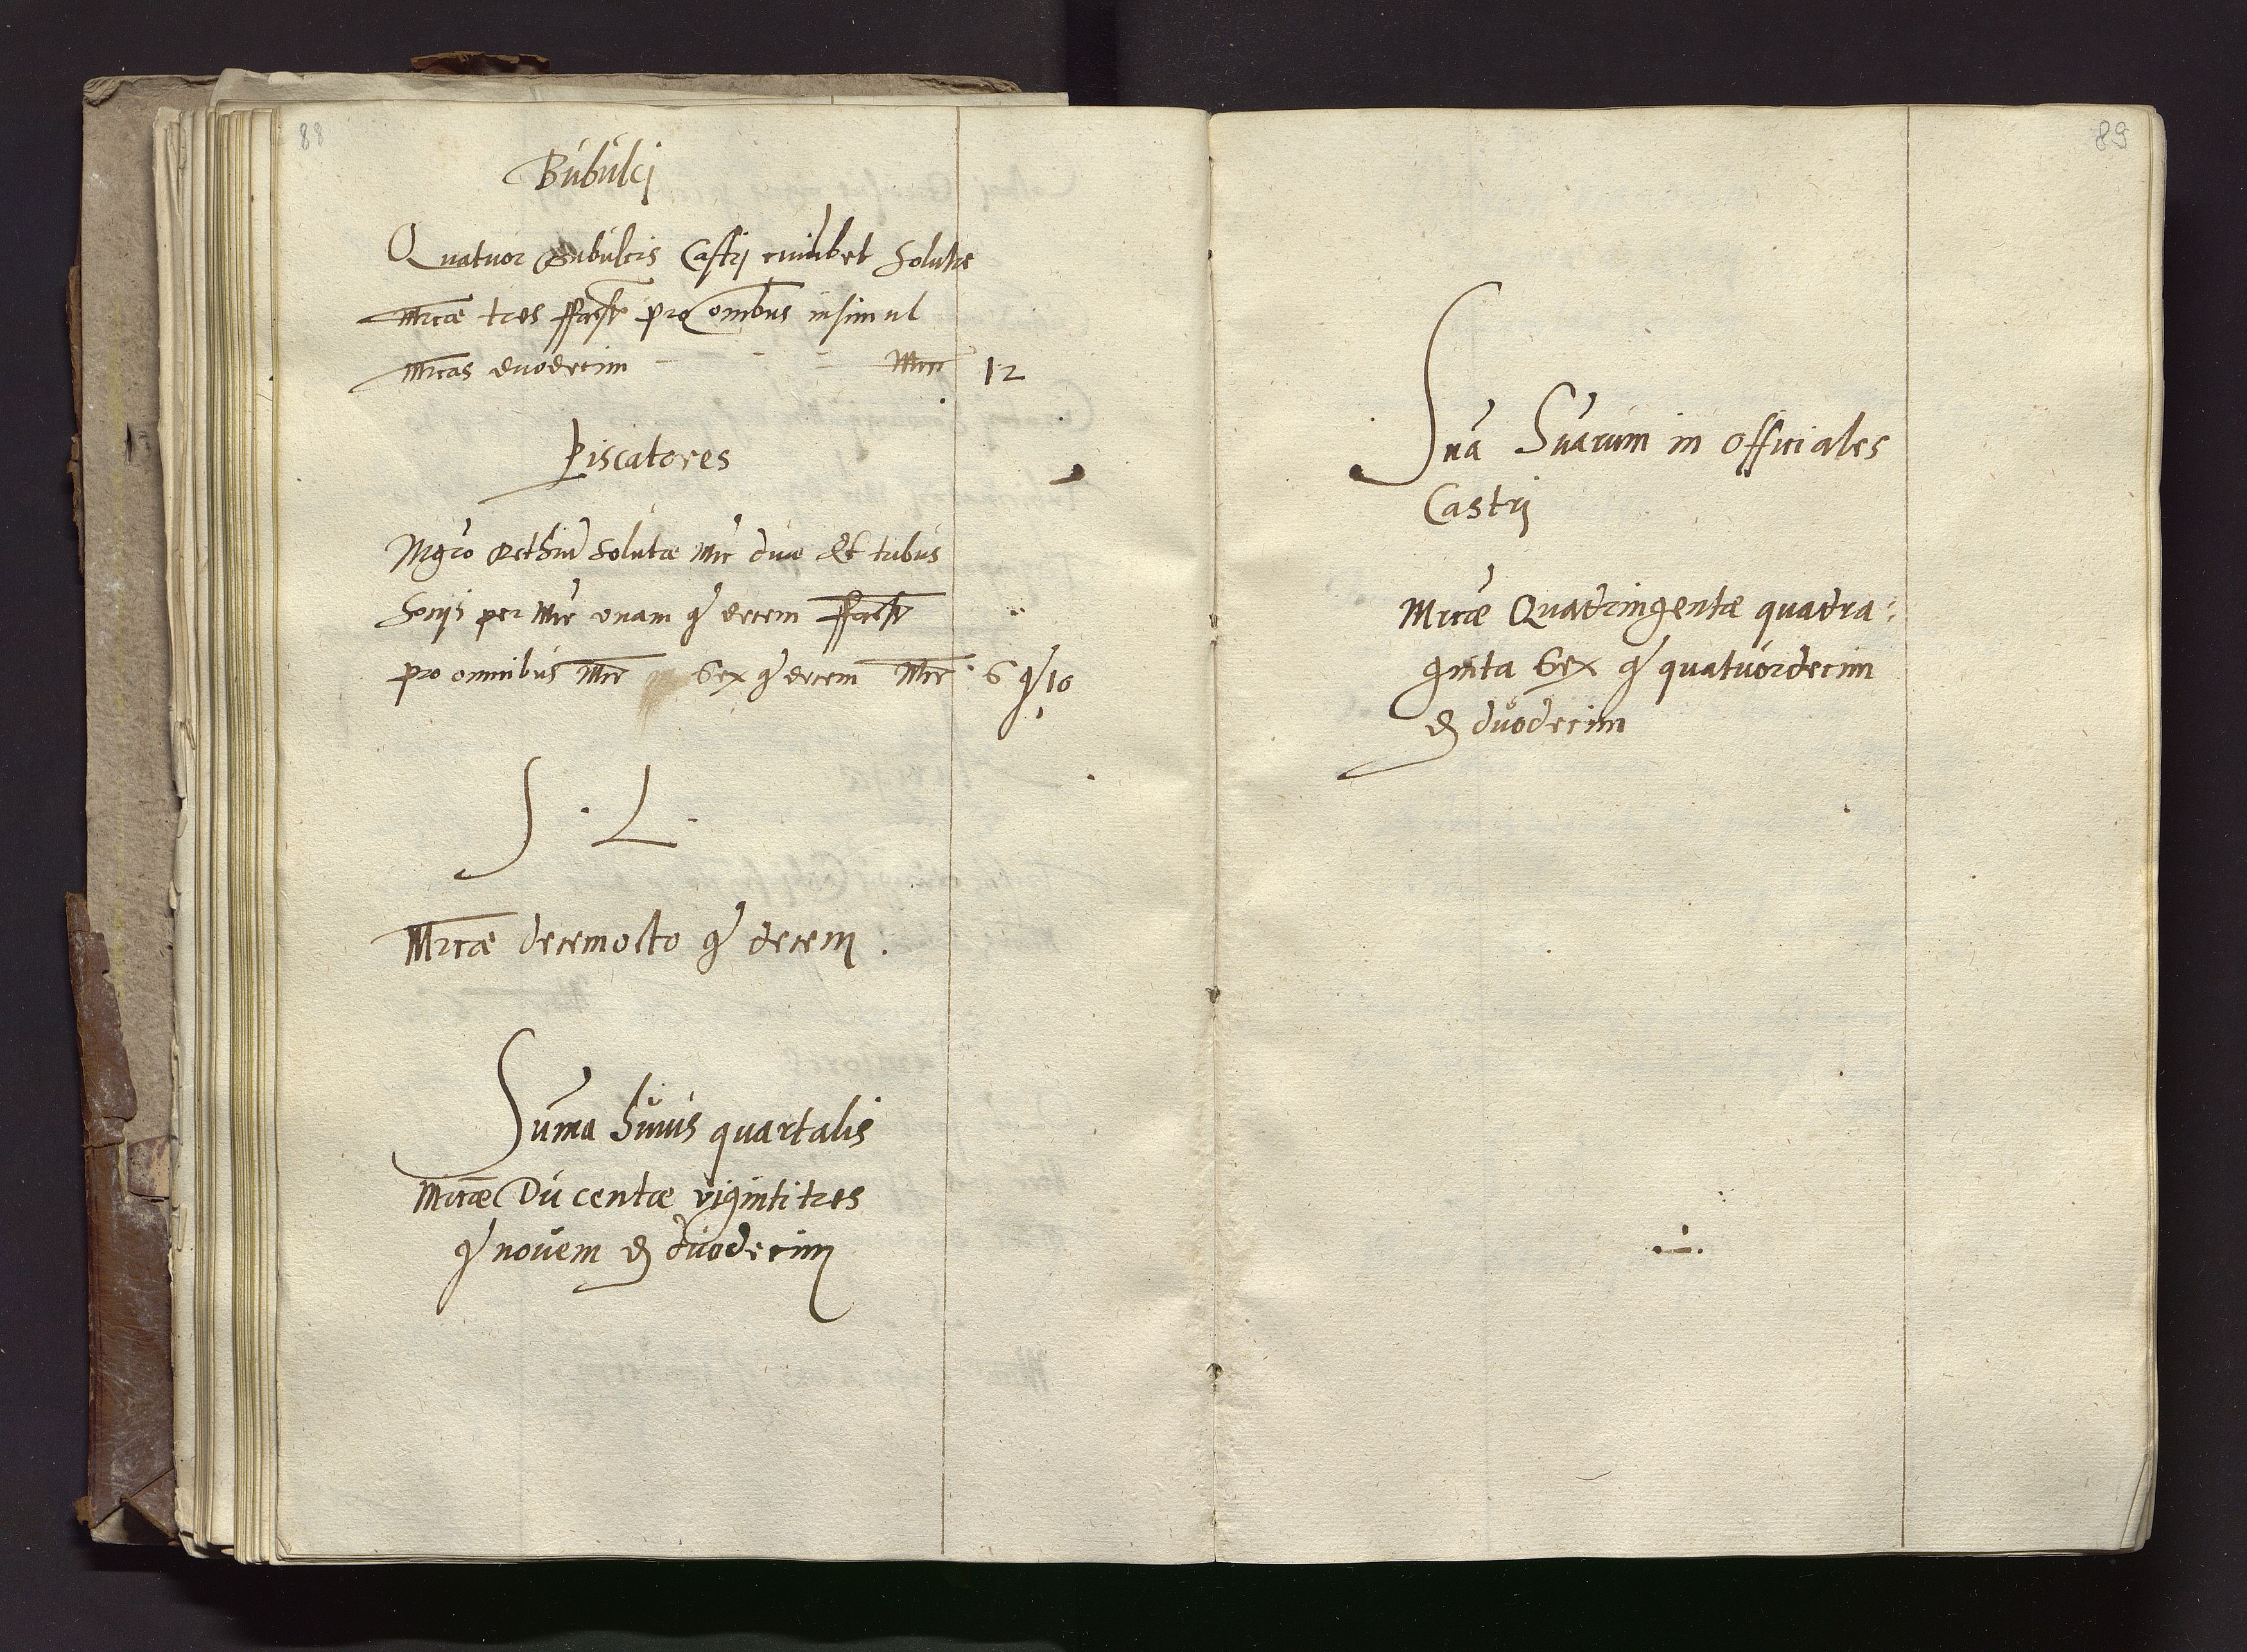 88
Bubulci
Quatuor Bubulcis Castrj cuilibet Solutæ
Mrcæ tres ffacit pro omībus insimul
Mrcas duodecim - - - Mrc 12
Piscatores
Mgro solutæ Mrc duæ Et tribus
Socijs per Mrc unam gr decem ffacit
pro omnibus Mrc Sex gr decem Mrc 6 gr 10
S . L .
Mrcæ decemocto gr decem .
Suma huius quartalis
Mrcæ Ducentæ vigintitres
gr novem d duodecim
89
Sua Suarum in Officiales
Castrj
Mrcæ Quadringentæ quadra:
ginta Sex gr quatuordecim
d duodecim